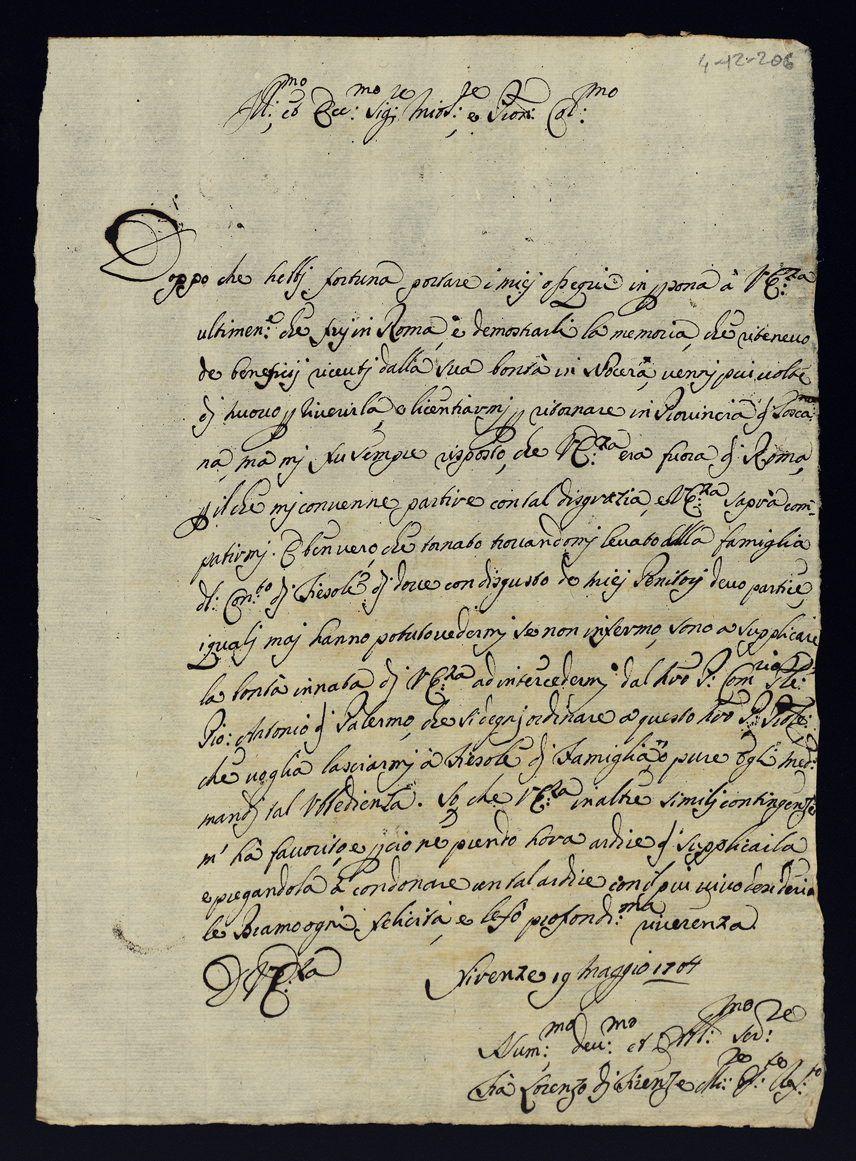 4-12-206
Ill:mo et Ecc:mo Sig:re mio Sig:re e Pron: Col:mo
Doppo che hebbi fortuna portare i miei ossequii in ppona à V.E:za
ultimen:e che fuj in Roma, e demostrarli la memoria, che ritenevo
de beneficij ricevutj dalla sua bontà in Nocera, vennj più volte
dj nuovo p riverirla, e licentiarmj p ritornare in Provincia dj Tosca:
na, ma mj fu sempre risposto, che V.E:za era fuora dj Roma,
p il che mj convenne partire con tal disgrazia, e V.E:za saprà com-
patirmj. È ben vero, che tornato trovandomj levato dalla famiglia
d: Con:to dj Fiesole dj dove con disgusto de miej Genitorj devo partire,
i qualj maj hanno potuto vedermj se non infermo, sono a supplicare
la bontà innata dj V.E:za ad intercedermj dal nro P: Com:rio
Pio: Antonio dj Palermo, che si degnj ordinare a questo nro P: Prole:
che voglia lasciarmj à Fiesole dj Famiglia, o pure Egli med:
mandj tal Ubbedienza. Sò che V.E:za in altre similj contingenze
m' hà favorito, e p ciò ne prendo hora ardire dj supplicarla
e pregandola à condonare un tal ardire con il più vivo desiderio
le Bramo ogni felicità, e le fò profondi:ma riverenza.
D V.E:za Firenze 19 Maggio 1704
Hum:mo dev:mo et Obbl:mo Ser:re
Frà Lorenzo dj Firenze